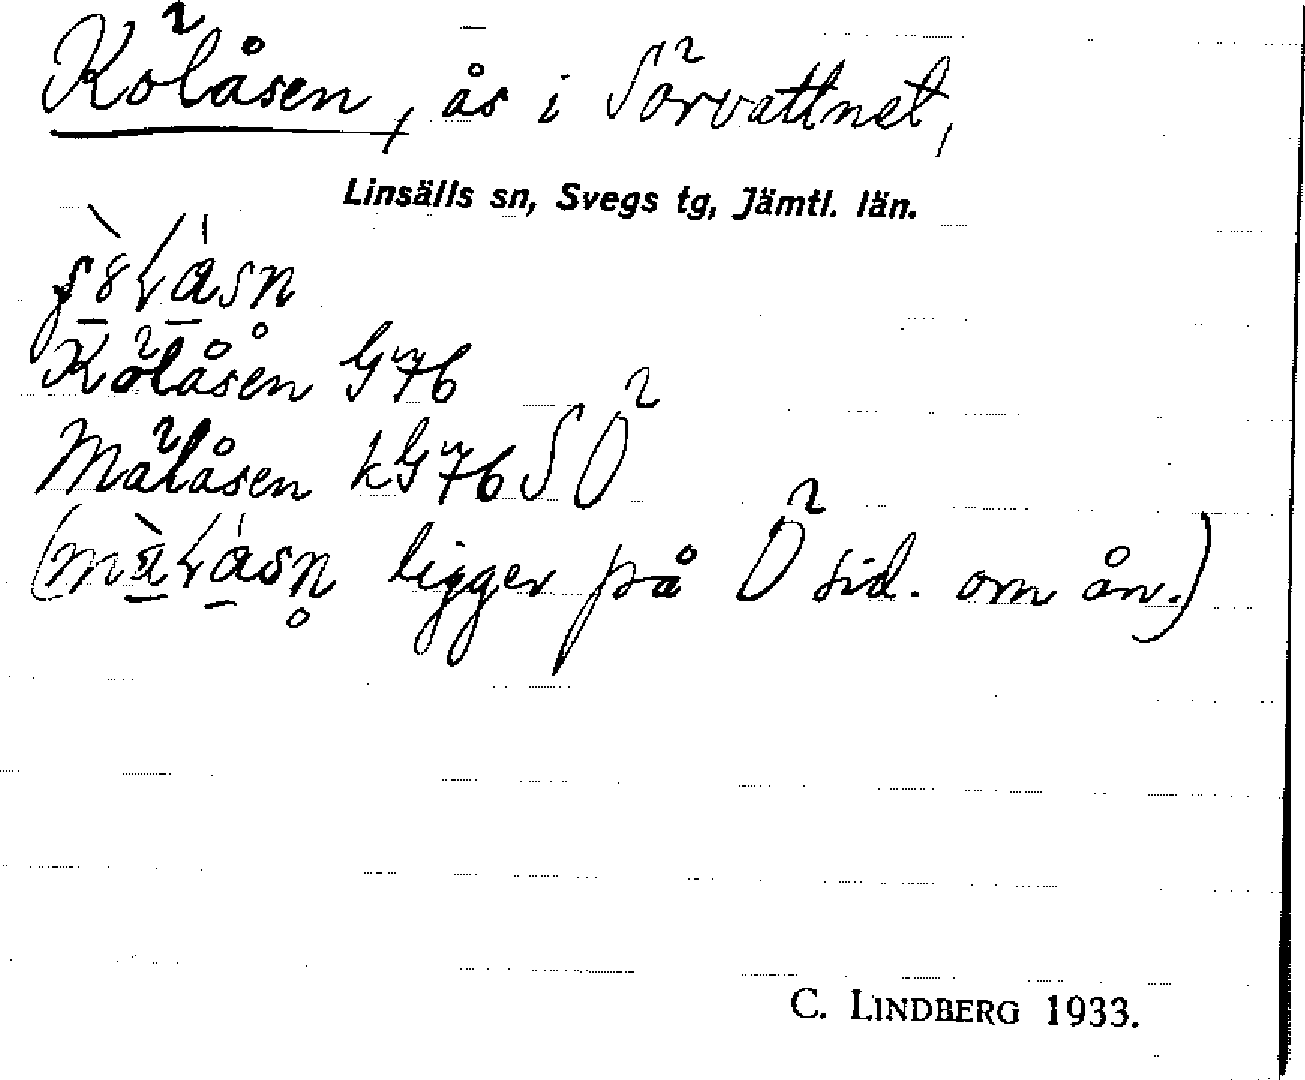 Kölåsen, ås i Sörvattnet,
Linsälls sn, Svegs tg, Jämtl. län.
Kölåsen G 76
Mälåsen k G 76 SÖ
ligger på Ö sid. om ån.)
C. LINDBERG 1933.